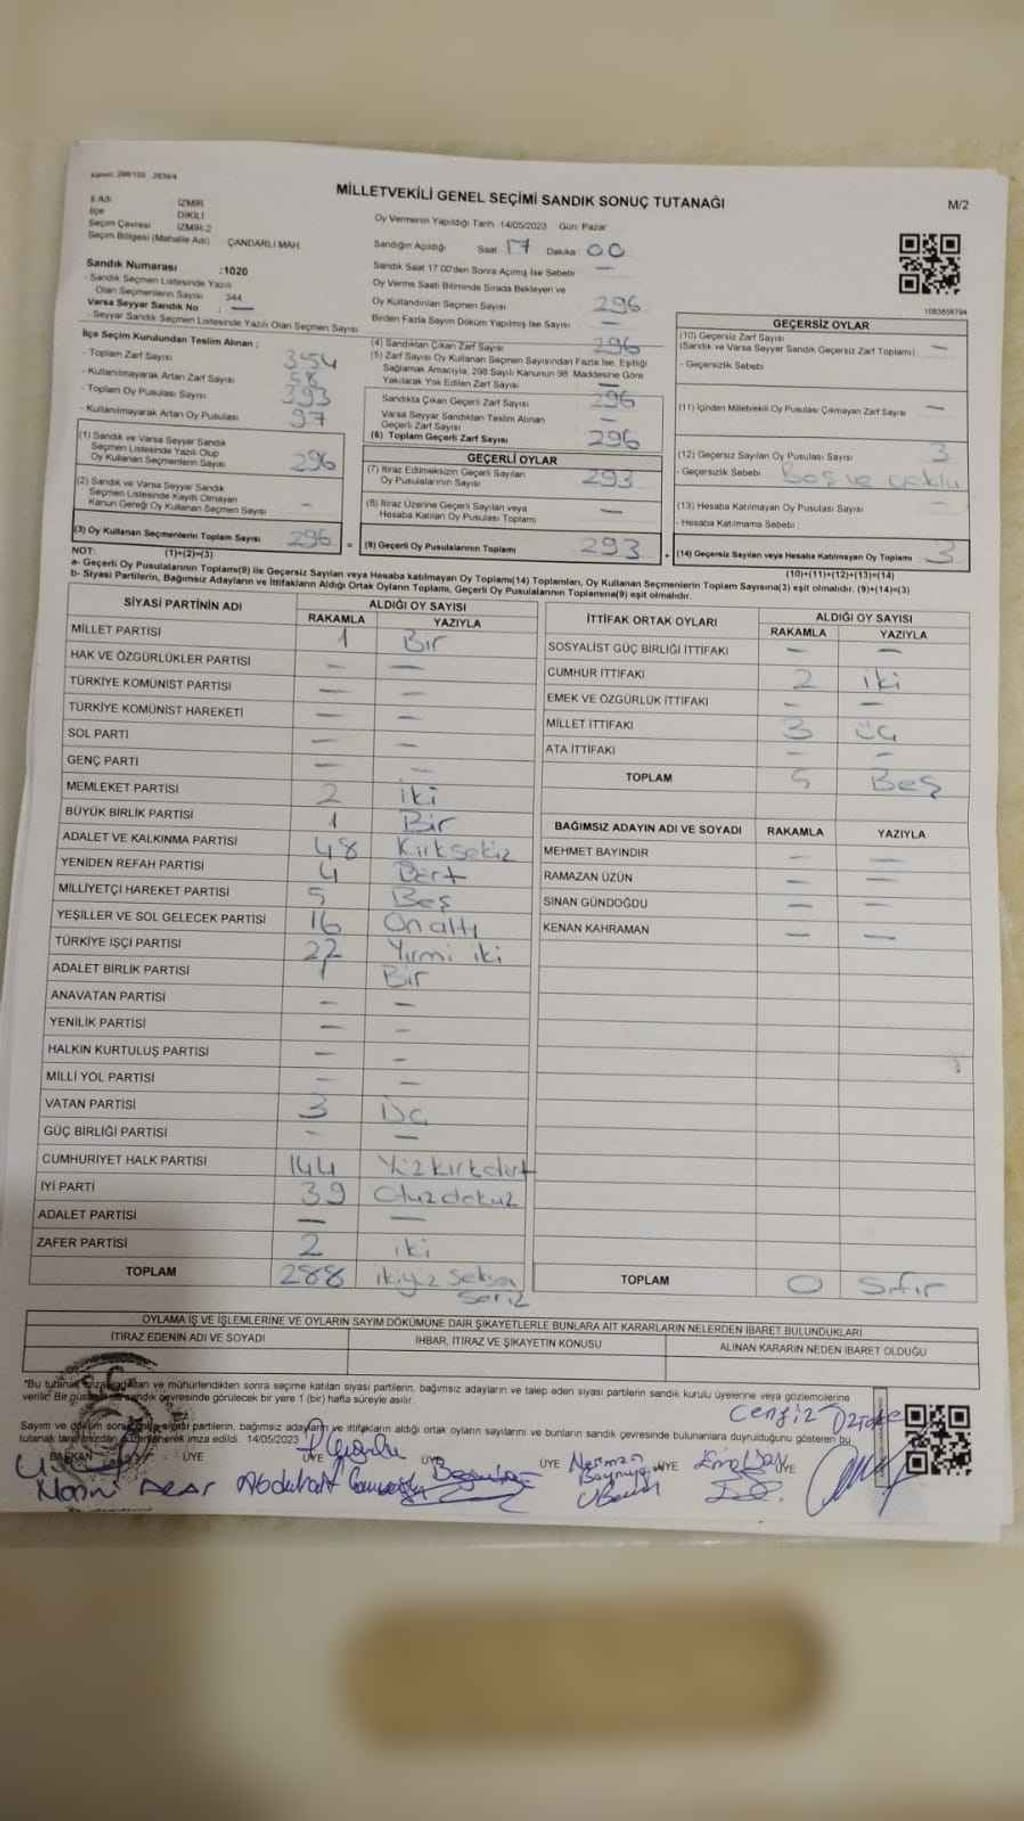 MİLLETVEKİLİ GENEL SEÇİMİ SANDIK SONUÇ TUTANAĞI
M/2
İl Adı İZMİR
İlçe DİKİLİ
Seçim Çevresi İZMİR-2
Seçim Bölgesi (Mahalle Adı) ÇANDARLI MAH.
Sandık Numarası :1020
- Sandık Seçmen Listesinde Yazılı
Olan Seçmenlerin Sayısı 344
Varsa Seyyar Sandık No : —
- Seyyar Sandık Seçmen Listesinde Yazılı Olan Seçmen Sayısı
Oy Vermenin Yapıldığı Tarih 14/05/2023 Gün: Pazar
Sandığın Açıldığı Saat 17 Dakika 00
Sandık Saat 17.00'den Sonra Açılmış İse Sebebi —
Oy Verme Saati Bitiminde Sırada Bekleyen ve
Oy Kullandırılan Seçmen Sayısı 296
Birden Fazla Sayım Döküm Yapılmış İse Sayısı —
1083658794
İlçe Seçim Kurulundan Teslim Alınan :
- Toplam Zarf Sayısı 354
- Kullanılmayarak Artan Zarf Sayısı 58
- Toplam Oy Pusulası Sayısı 393
- Kullanılmayarak Artan Oy Pusulası 97
(1) Sandık ve Varsa Seyyar Sandık
Seçmen Listesinde Yazılı Olup
Oy Kullanan Seçmenlerin Sayısı 296
(2) Sandık ve Varsa Seyyar Sandık
Seçmen Listesinde Kayıtlı Olmayan
Kanun Gereği Oy Kullanan Seçmen Sayısı —
(3) Oy Kullanan Seçmenlerin Toplam Sayısı 296
(1)+(2)=(3)
(4) Sandıktan Çıkan Zarf Sayısı 296
(5) Zarf Sayısı Oy Kullanan Seçmen Sayısından Fazla İse, Eşitliği
Sağlamak Amacıyla, 298 Sayılı Kanunun 98. Maddesine Göre
Yakılarak Yok Edilen Zarf Sayısı —
Sandıkta Çıkan Geçerli Zarf Sayısı 296
Varsa Seyyar Sandıktan Teslim Alınan
Geçerli Zarf Sayısı —
(6) Toplam Geçerli Zarf Sayısı 296
GEÇERLİ OYLAR
(7) İtiraz Edilmeksizin Geçerli Sayılan
Oy Pusulalarının Sayısı 293
(8) İtiraz Üzerine Geçerli Sayılan veya
Hesaba Katılan Oy Pusulası Toplamı —
= (9) Geçerli Oy Pusulalarının Toplamı 293
GEÇERSİZ OYLAR
(10) Geçersiz Zarf Sayısı
(Sandık ve Varsa Seyyar Sandık Geçersiz Zarf Toplamı) —
- Geçersizlik Sebebi
(11) İçinden Milletvekili Oy Pusulası Çıkmayan Zarf Sayısı —
(12) Geçersiz Sayılan Oy Pusulası Sayısı 3
- Geçersizlik Sebebi Boş ve
(13) Hesaba Katılmayan Oy Pusulası Sayısı —
- Hesaba Katılmama Sebebi :
+ (14) Geçersiz Sayılan veya Hesaba Katılmayan Oy Toplamı 3
(10)+(11)+(12)+(13)=(14)
NOT:
a- Geçerli Oy Pusulalarının Toplamı(9) ile Geçersiz Sayılan veya Hesaba katılmayan Oy Toplamı(14) Toplamları, Oy Kullanan Seçmenlerin Toplam Sayısına(3) eşit olmalıdır. (9)+(14)=(3)
b- Siyasi Partilerin, Bağımsız Adayların ve İttifakların Aldığı Ortak Oyların Toplamı, Geçerli Oy Pusulalarının Toplamına(9) eşit olmalıdır.
SİYASİ PARTİNİN ADI ALDIĞI OY SAYISI
RAKAMLA YAZIYLA
MİLLET PARTİSİ 1 Bir
HAK VE ÖZGÜRLÜKLER PARTİSİ — —
TÜRKİYE KOMÜNİST PARTİSİ — —
TÜRKİYE KOMÜNİST HAREKETİ — —
SOL PARTİ — —
GENÇ PARTİ — —
MEMLEKET PARTİSİ 2 iki
BÜYÜK BİRLİK PARTİSİ 1 Bir
ADALET VE KALKINMA PARTİSİ 48 Kırksekiz
YENİDEN REFAH PARTİSİ 4 Dört
MİLLİYETÇİ HAREKET PARTİSİ 5 Beş
YEŞİLLER VE SOL GELECEK PARTİSİ 16 Onaltı
TÜRKİYE İŞÇİ PARTİSİ 22 Yirmi iki
ADALET BİRLİK PARTİSİ 1 Bir
ANAVATAN PARTİSİ — —
YENİLİK PARTİSİ — —
HALKIN KURTULUŞ PARTİSİ — —
MİLLİ YOL PARTİSİ — —
VATAN PARTİSİ 3 Üç
GÜÇ BİRLİĞİ PARTİSİ — —
CUMHURİYET HALK PARTİSİ 144 Yüzkırkdört
İYİ PARTİ 39 Otuzdokuz
ADALET PARTİSİ — —
ZAFER PARTİSİ 2 iki
TOPLAM 288 ikiyüz seksen
sekiz
İTTİFAK ORTAK OYLARI ALDIĞI OY SAYISI
RAKAMLA YAZIYLA
SOSYALİST GÜÇ BİRLİĞİ İTTİFAKI — —
CUMHUR İTTİFAKI 2 iki
EMEK VE ÖZGÜRLÜK İTTİFAKI — —
MİLLET İTTİFAKI 3 üç
ATA İTTİFAKI — —
TOPLAM 5 Beş
BAĞIMSIZ ADAYIN ADI VE SOYADI RAKAMLA YAZIYLA
MEHMET BAYINDIR — —
RAMAZAN UZUN — —
SİNAN GÜNDOĞDU — —
KENAN KAHRAMAN — —
TOPLAM 0 Sıfır
OYLAMA İŞ VE İŞLEMLERİNE VE OYLARIN SAYIM DÖKÜMÜNE DAİR ŞİKAYETLERLE BUNLARA AİT KARARLARIN NELERDEN İBARET BULUNDUKLARI
İTİRAZ EDENİN ADI VE SOYADI İHBAR, İTİRAZ VE ŞİKAYETİN KONUSU ALINAN KARARIN NEDEN İBARET OLDUĞU
"Bu tutanak ve mühürlendikten sonra seçime katılan siyasi partilerin, bağımsız adayların ve talep eden siyasi partilerin sandık kurulu üyelerine veya gözlemcilerine
verilir. Bir sandık çevresinde görülecek bir yere 1 (bir) hafta süreyle asılır.
Sayım ve döküm partilerin, bağımsız adayların ve ittifakların aldığı ortak oyların sayılarını ve bunların sandık çevresinde bulunanlara duyurulduğunu gösteren bu
tutanak imza edildi. 14/05/2023
Cengiz
BAŞKAN ÜYE ÜYE ÜYE ÜYE ÜYE ÜYE
Nerman